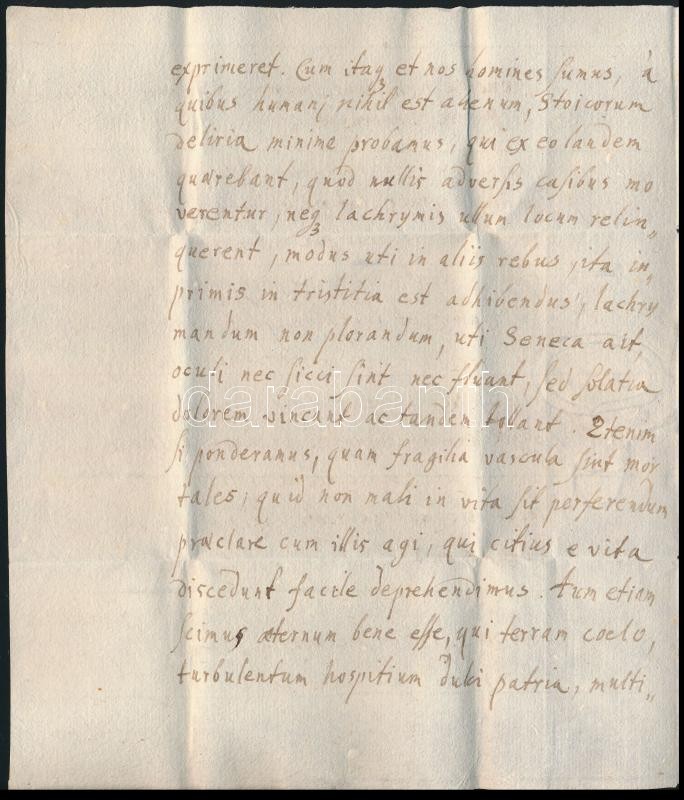 exprimeret. Cum itaq3 et nos homines sumus, à
quibus humanj nihil est alienum, Stoicorum
deliria minime probamus, qui ex eo laudem
quærebant, quod nullis adversis casibus mo
verentur, neq3 lachrymis ullum locum relin„
querent, modus uti in aliis rebus, ita in„
primis in tristitia est adhibendus, lachry
mandum non plorandum, uti Seneca ait,
oculi nec sicci sint nec fluant, sed solatia
darabanth
dolorem vincant ac tandem tollant. Etenim
si ponderamus, quam fragilia vascula sint mor
tales, quid non mali in vita sit perferendum
præclare cum illis agi, qui citius e vita
discedunt facile deprehendimus. Tum etiam
scimus æternum bene esse, qui terram coelo,
turbulentum hospitium dulci patria, multi„